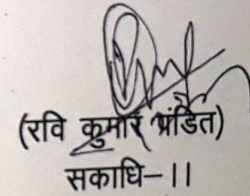 (रवि कुमार पंडित)
सकाधि-II